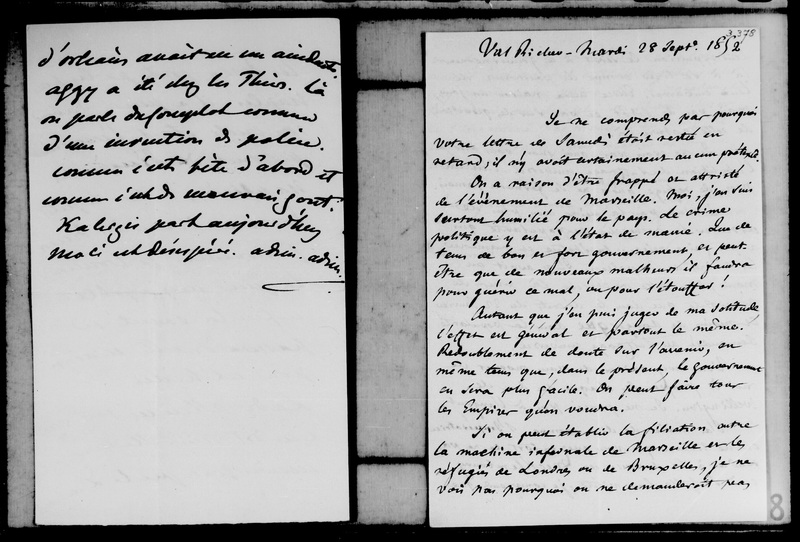 d'orléans avait eu un accident
aggy a été chez les Thiers. Là
on parle du complot comme
d'une invention de police.
comme c'est bête d'abord et
comme c'est de mauvais gout.
Kalergis part aujourd'huy
Molé est désespéré. adieu. adieu.
3.378
Val Richer - Mardi 28 Septe. 1852
Je ne comprends pas pourquoi
votre lettre de Samedi était restée en
retard ; il n'y avoit certainement aucun prétexte.
On a raison d'être frappé et attristé
de l'événement de Marseille. Moi, j'en suis
surtout humilié pour le pays. Le crime
politique y est à l'état de manie. Que de
tems de bon et fort gouvernement, et peut
être que de nouveaux malheurs il faudra
pour guérir ce mal, ou pour l'étouffer !
Autant que j'en puis juger de ma solitude,
l'effet est général et partout le même.
Redoublement de doute sur l'avenir, en
même tems que, dans le présent, le gouvernement
en sera plus facile. On peut faire tous
les Empires qu'on voudra.
Si on peut établir la filiation entre
la machine infernale de Marseille et les
réfugiés de Londres ou de Bruxelles, je ne
vois pas pourquoi on ne demanderoit pas
8